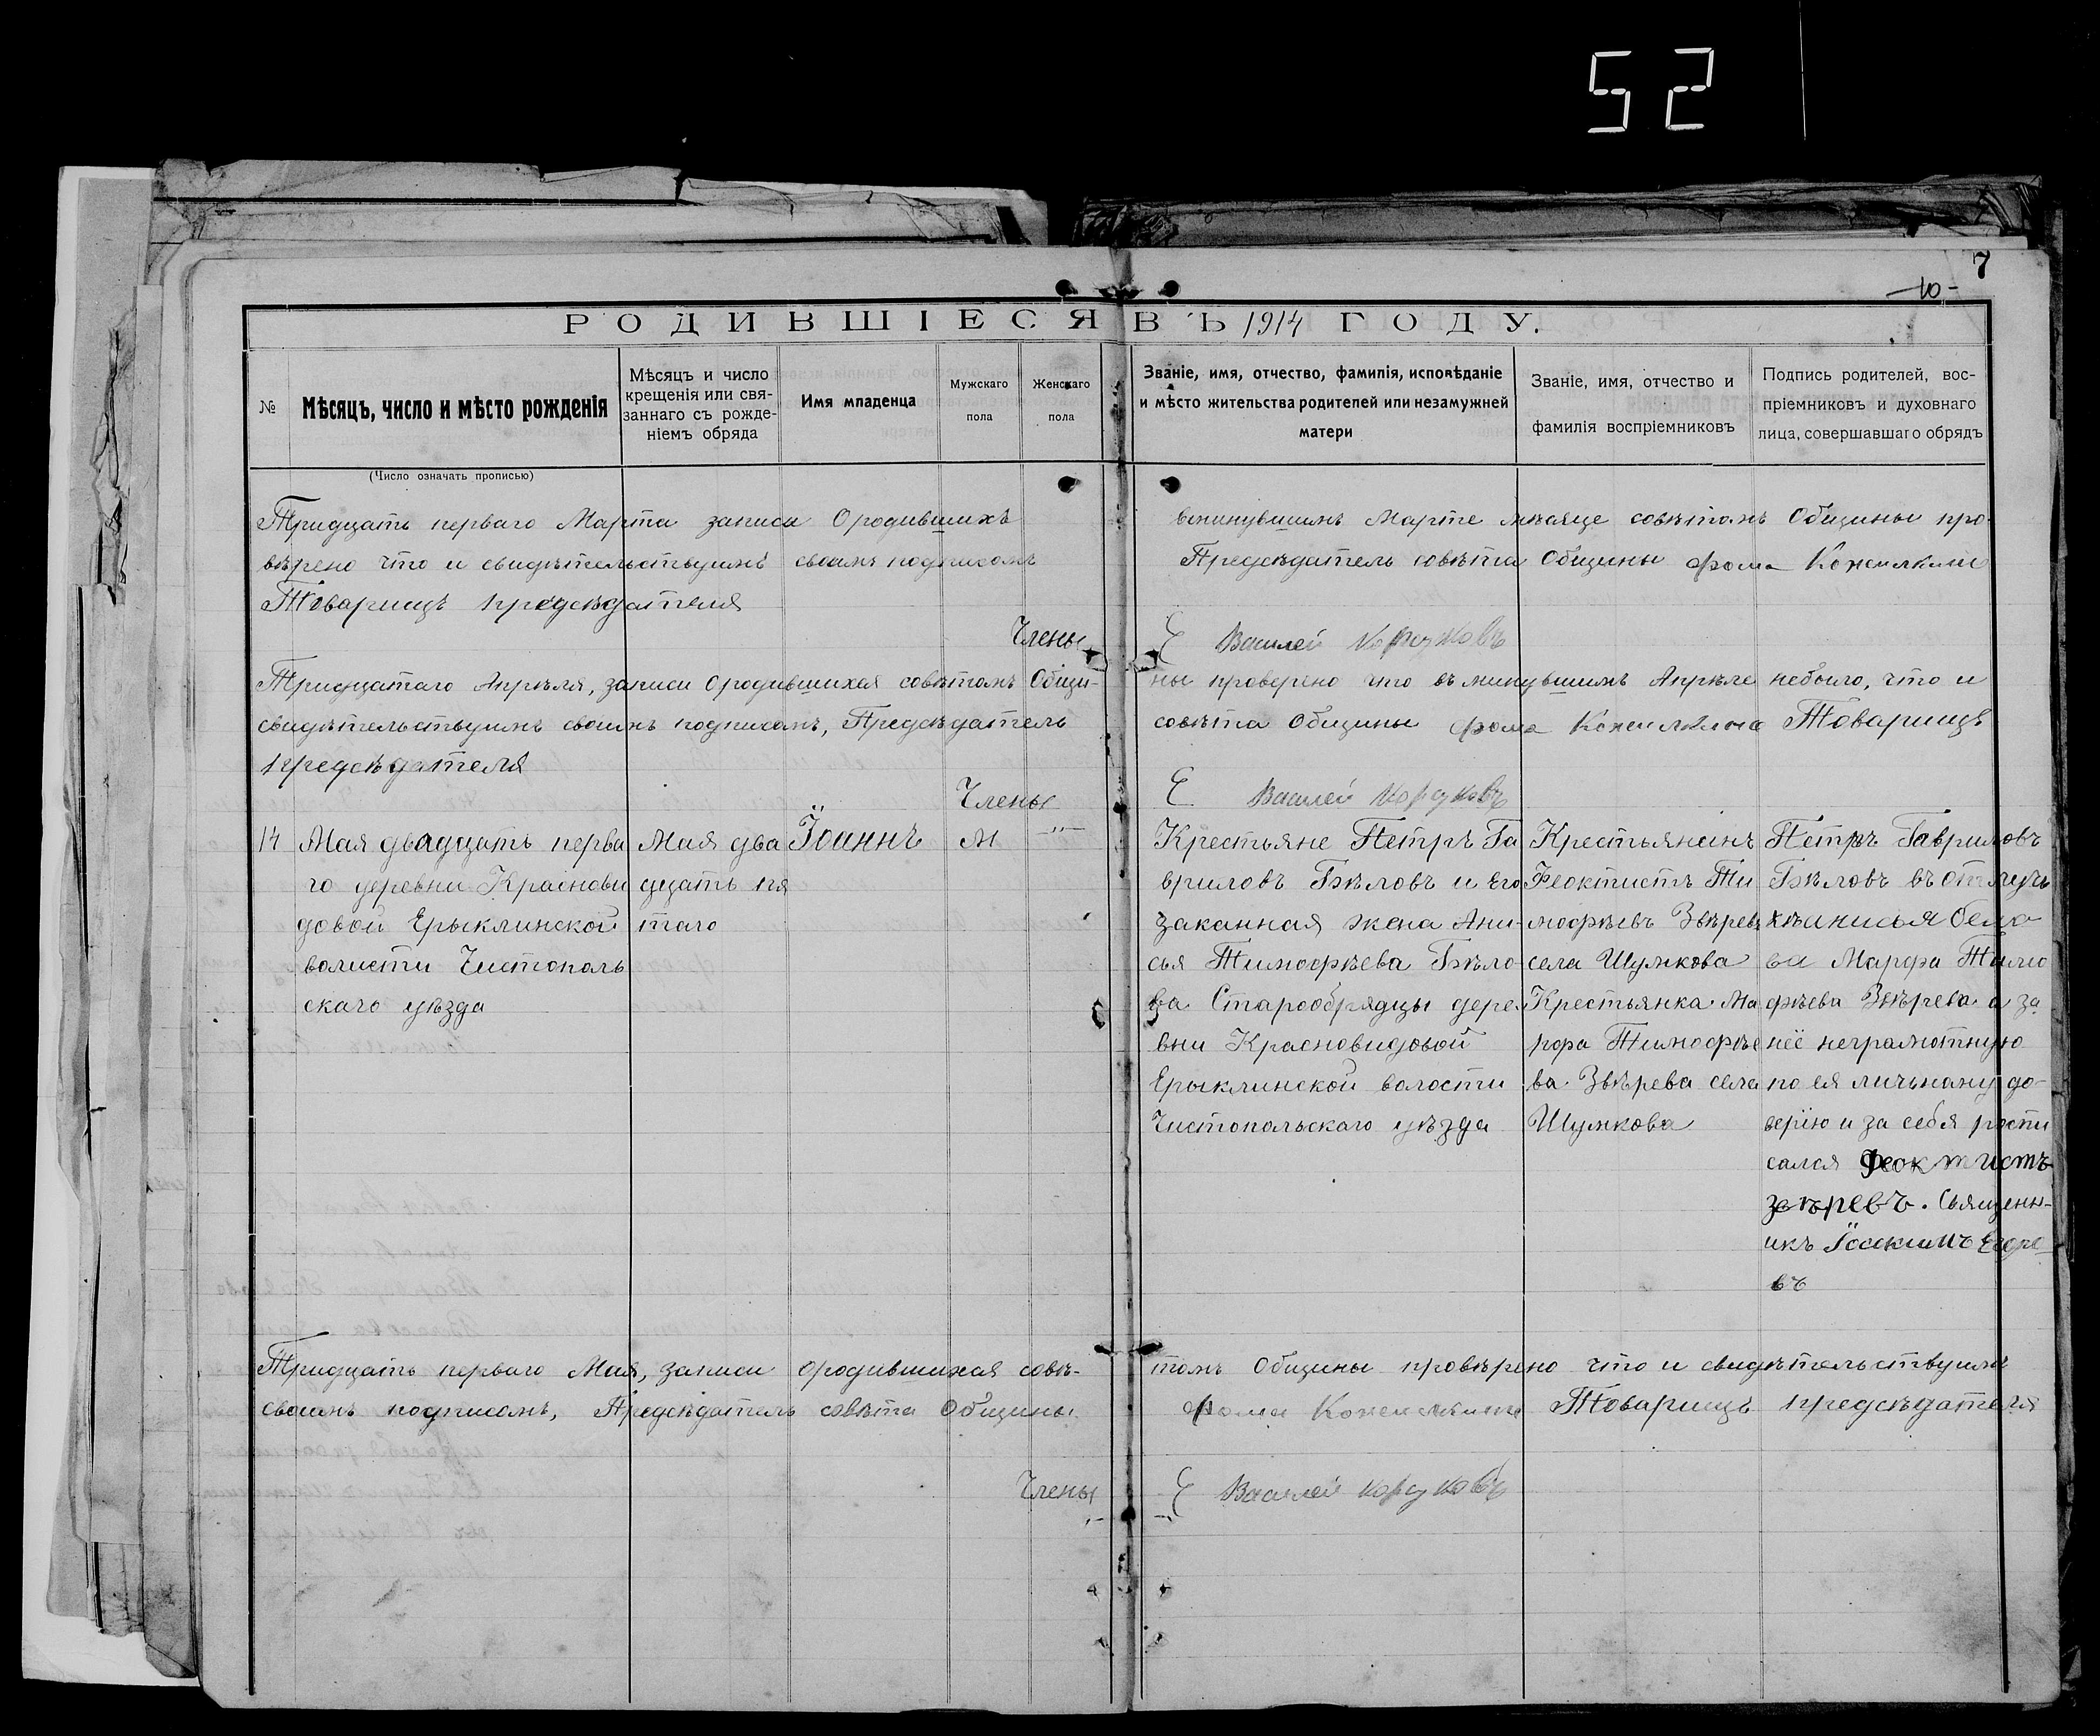 52
7
10-
РОДИВШІЕСЯ ВЪ 1914 ГОДУ.
№
Мѣсяцъ, число и мѣсто рожденія
Мѣсяцъ и число
крещенія или свя-
заннаго съ рожде-
ніемъ обряда
Имя младенца
Мужскаго
пола
Женскаго
пола
Званіе, имя, отчество, фамилія, исповѣданіе
и мѣсто жительства родителей или незамужней
матери
Званіе, имя, отчество и
фамилія воспріемниковъ
Подпись родителей, вос-
пріемниковъ и духовнаго
лица, совершавшаго обрядъ
(Число означать прописью)
Тридцать перваго Марта записи Ородившихъ вминувшимъ Марте мѣсяце совѣтомъ Общины про-
вѣрено что и свидѣтельствуимъ своимъ подписомъ Предсѣдатель совѣта Общины Фома
Товарищъ предсѣдателя
Члены { Василей
Тридцатаго Апрѣля, записи Ородившихся совѣтомъ Общи- ны проверено что въ минувшимъ Апрѣле небыло, что и
свидѣтельствуимъ своимъ подписомъ, Предсѣдатель совѣта Общины Фома Товарищъ
предсѣдателя
Члены { Василей
14
Мая двадцать перва
го деревни Краснови
довой Ерыклинской
волисти Чистополь
скаго уѣзда
Мая два
дцать пя
таго
Іоаннъ
М
-"-
Крестьяне Петръ Га
вриловъ Бѣловъ и Его
заканная жена Ани-
сья Тимофѣева Бѣло-
ва Старообрядцы дере-
вни Красновидовой
Ерыклинской волости
Чистопольскаго уѣзда
Крестьянинъ
Феоктистъ Ти
мофѣевъ Звѣревъ
села Шумкова
Крестьянка Ма
рфа Тимофѣе
ва Звѣрева села
Шумкова
Петръ Гавриловъ
Бѣловъ въ отлучь
кѣ анисья бело
ва Марфа Тимо
фѣева Звѣрева а за
неё неграмотную
по ея личьному до-
верію и за себя роспи
сался Феоктистъ
звѣревъ. Священн-
икъ Іоакимъ Егоре
въ
Тридцать перваго Мая, записи Ородившихся совѣ- томъ Общины провѣрено что и свидѣтельствуимъ
своимъ подписомъ, Предсѣдатель совѣта Общины Фома Товарищъ предсѣдателя
Члены { Василей